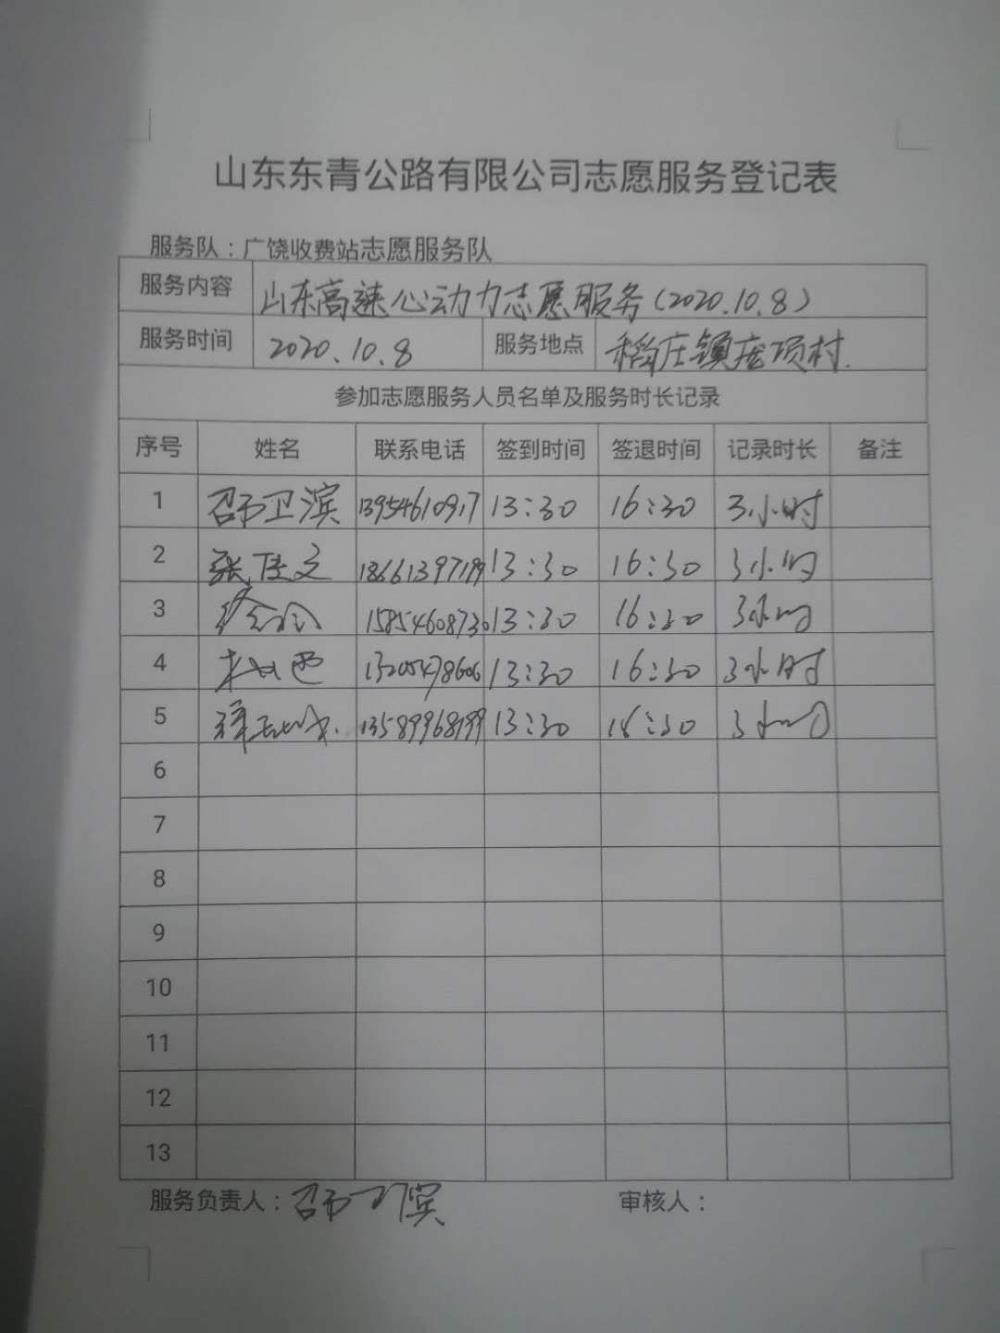 山东东青公路有限公司志愿服务登记表
服务队：广饶收费站志愿服务队
服务内容 山东高速心动力志愿服务(2020.10.8)
服务时间 2020.10.8 服务地点 稻庄镇项村.
参加志愿服务人员名单及服务时长记录
序号 姓名 联系电话 签到时间 签退时间 记录时长 备注
1 邵卫滨 13954610917 13:30 16:30 3小时
2 张佳文 18661397199 13:30 16:30 3小时
3 徐 15854608730 13:30 16:30 3小时
4 13205478606 13:30 16:30 3小时
5 13589968199 13:30 16:30 3小时
6
7
8
9
10
11
12
13
服务负责人：邵卫滨 审核人：